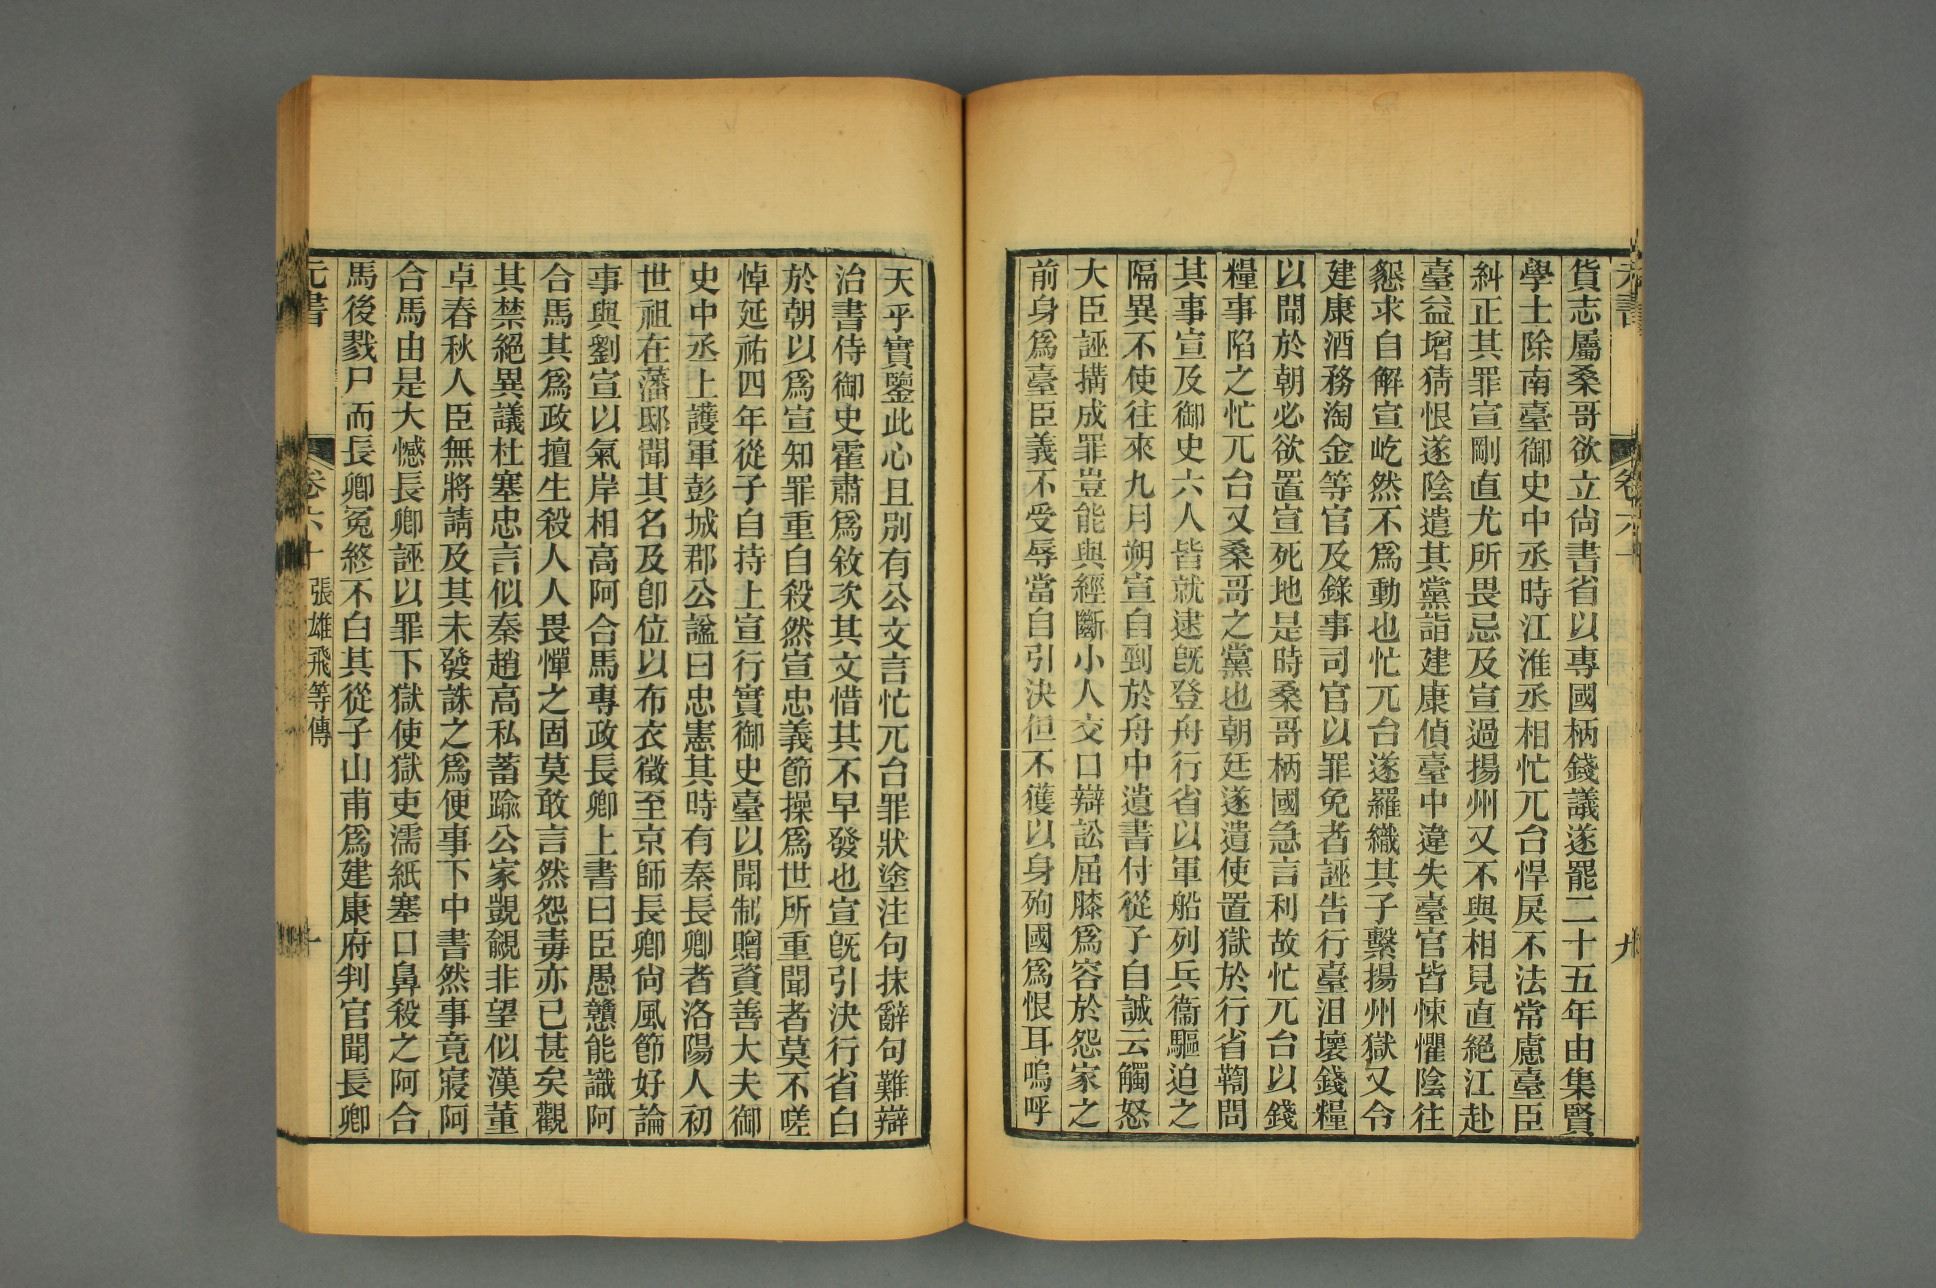 元書
卷六十
九
貨志屬桑哥欲立尙書省以專國柄錢議遂罷二十五年由集賢
學士除南臺御史中丞時江淮丞相忙兀台悍戾不法常慮臺臣
糾正其罪宣剛直尤所畏忌及宣過揚州又不與相見直絕江赴
臺益增猜恨遂陰遣其黨詣建康偵臺中違失臺官皆悚懼陰往
懇求自解宣屹然不爲動也忙兀台遂羅織其子繫揚州獄又令
建康酒務淘金等官及錄事司官以罪免者誣告行臺沮壞錢糧
以聞於朝必欲置宣死地是時桑哥柄國急言利故忙兀台以錢
糧事陷之忙兀台又桑哥之黨也朝廷遂遣使置獄於行省鞫問
其事宣及御史六人皆就逮旣登舟行省以軍船列兵衞驅迫之
隔異不使往來九月朔宣自剄於舟中遺書付從子自誠云觸怒
大臣誣搆成罪豈能與經斷小人交口辯訟屈膝爲容於怨家之
前身爲臺臣義不受辱當自引決但不獲以身殉國爲恨耳嗚呼
天乎實鑒此心且別有公文言忙兀台罪狀塗注句抹辭句難辯
治書侍御史霍肅爲敘次其文惜其不早發也宣旣引決行省白
於朝以爲宣知罪重自殺然宣忠義節操爲世所重聞者莫不嗟
悼延祐四年從子自持上宣行實御史臺以聞制贈資善大夫御
史中丞上護軍彭城郡公諡曰忠憲其時有秦長卿者洛陽人初
世祖在藩邸聞其名及卽位以布衣徵至京師長卿尙風節好論
事與劉宣以氣岸相高阿合馬專政長卿上書曰臣愚戇能識阿
合馬其爲政擅生殺人人畏憚之固莫敢言然怨毒亦已甚矣觀
其禁絕異議杜塞忠言似秦趙高私蓄踰公家覬覦非望似漢董
卓春秋人臣無將請及其未發誅之爲便事下中書然事竟寢阿
合馬由是大憾長卿誣以罪下獄使獄吏濡紙塞口鼻殺之阿合
馬後戮尸而長卿冤終不白其從子山甫爲建康府判官聞長卿
元書
卷六十
張雄飛等傳